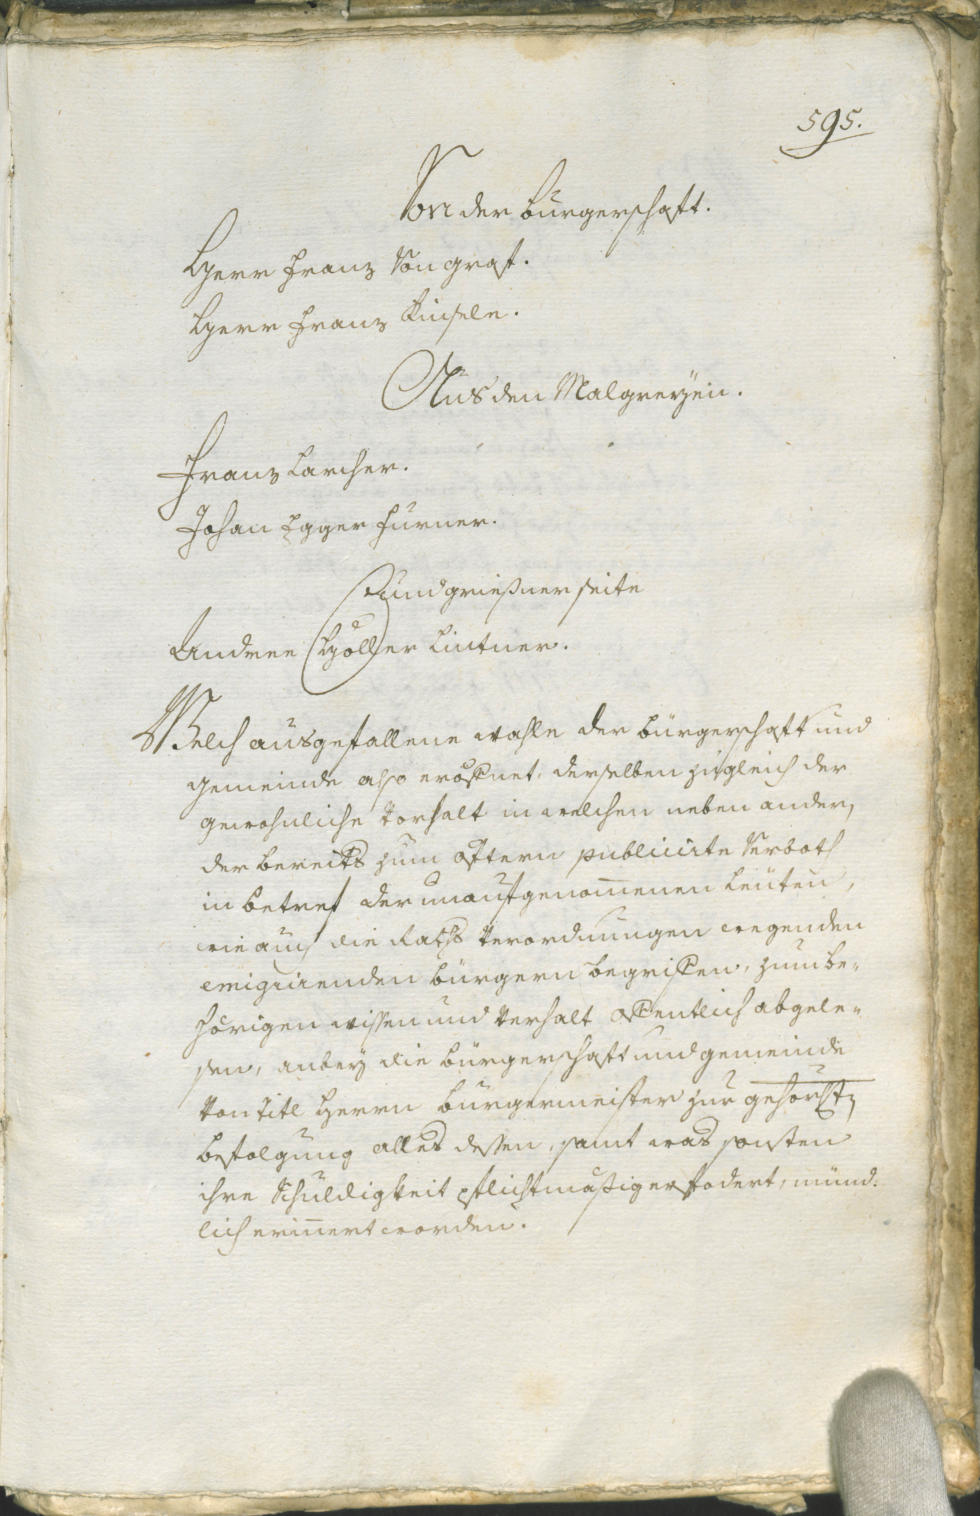 595.
Von der Burgerschafft.
Herr Franz von graf.
Herr Franz Kinsele.
Aus den Malgreyen.
Franz Larcher.
Johan Egger Furner.
Rundgrießner seite
Andree Höller Lintner.
Welch ausgefallene wahle der bürgerschafft und
gemeinde also eröfnet, derselben zugleich der
gewohnliche Vorhalt in welchen neben ander,
der bereits zum öfftern publicirte Verboth
in betref der unaufgenomenen leuten,
wie auch die Raths Verordnungen wegen den
emigrirenden bürgern begriffen, zum be-
hörigen wissen und Verhalt offentlich abgele-
sen, anbey die bürgerschafft und gemeinde
von Titl Herrn burgermeister zur gehorst
befolgung alles dessen, samt was sonsten
ihre Schuldigkeit pflichtmäßig erfodert, münd-
lich erinert worden.